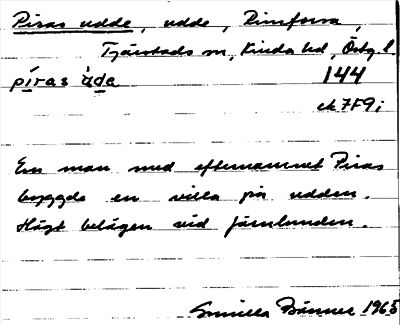 Piras udde, udde, Rimforsa,
Tjärstads sn, Kinda hd, Östg. l.
píras ùda 144
ek 7F9;
En man med efternamnet Piras
byggde en villa på udden.
Högt belägen vid Järnlunden.
Gunilla 1965